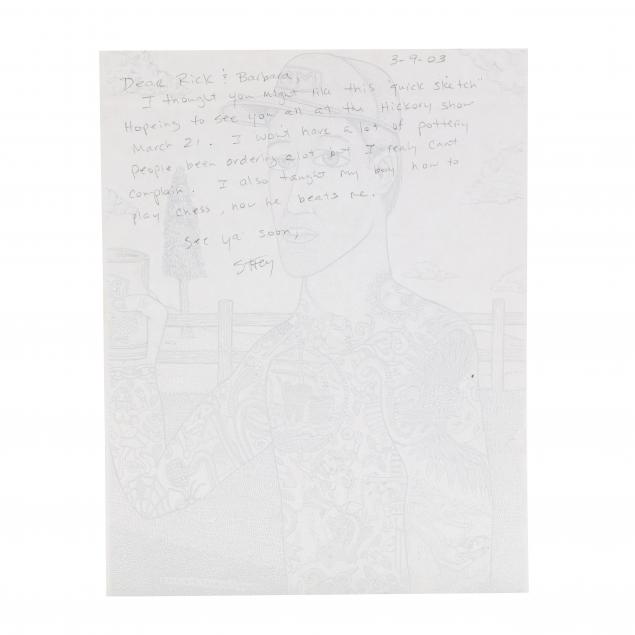 3-9-03
Dear Rick & Barbara,
I thought you might like this "quick sketch"
Hopeing to see you all at the Hickory show
March 21. I won't have a lot of pottery
People been ordering alot but I realy can't
complain. I also taught my boy how to
play chess, now he beats me.
see ya soon,